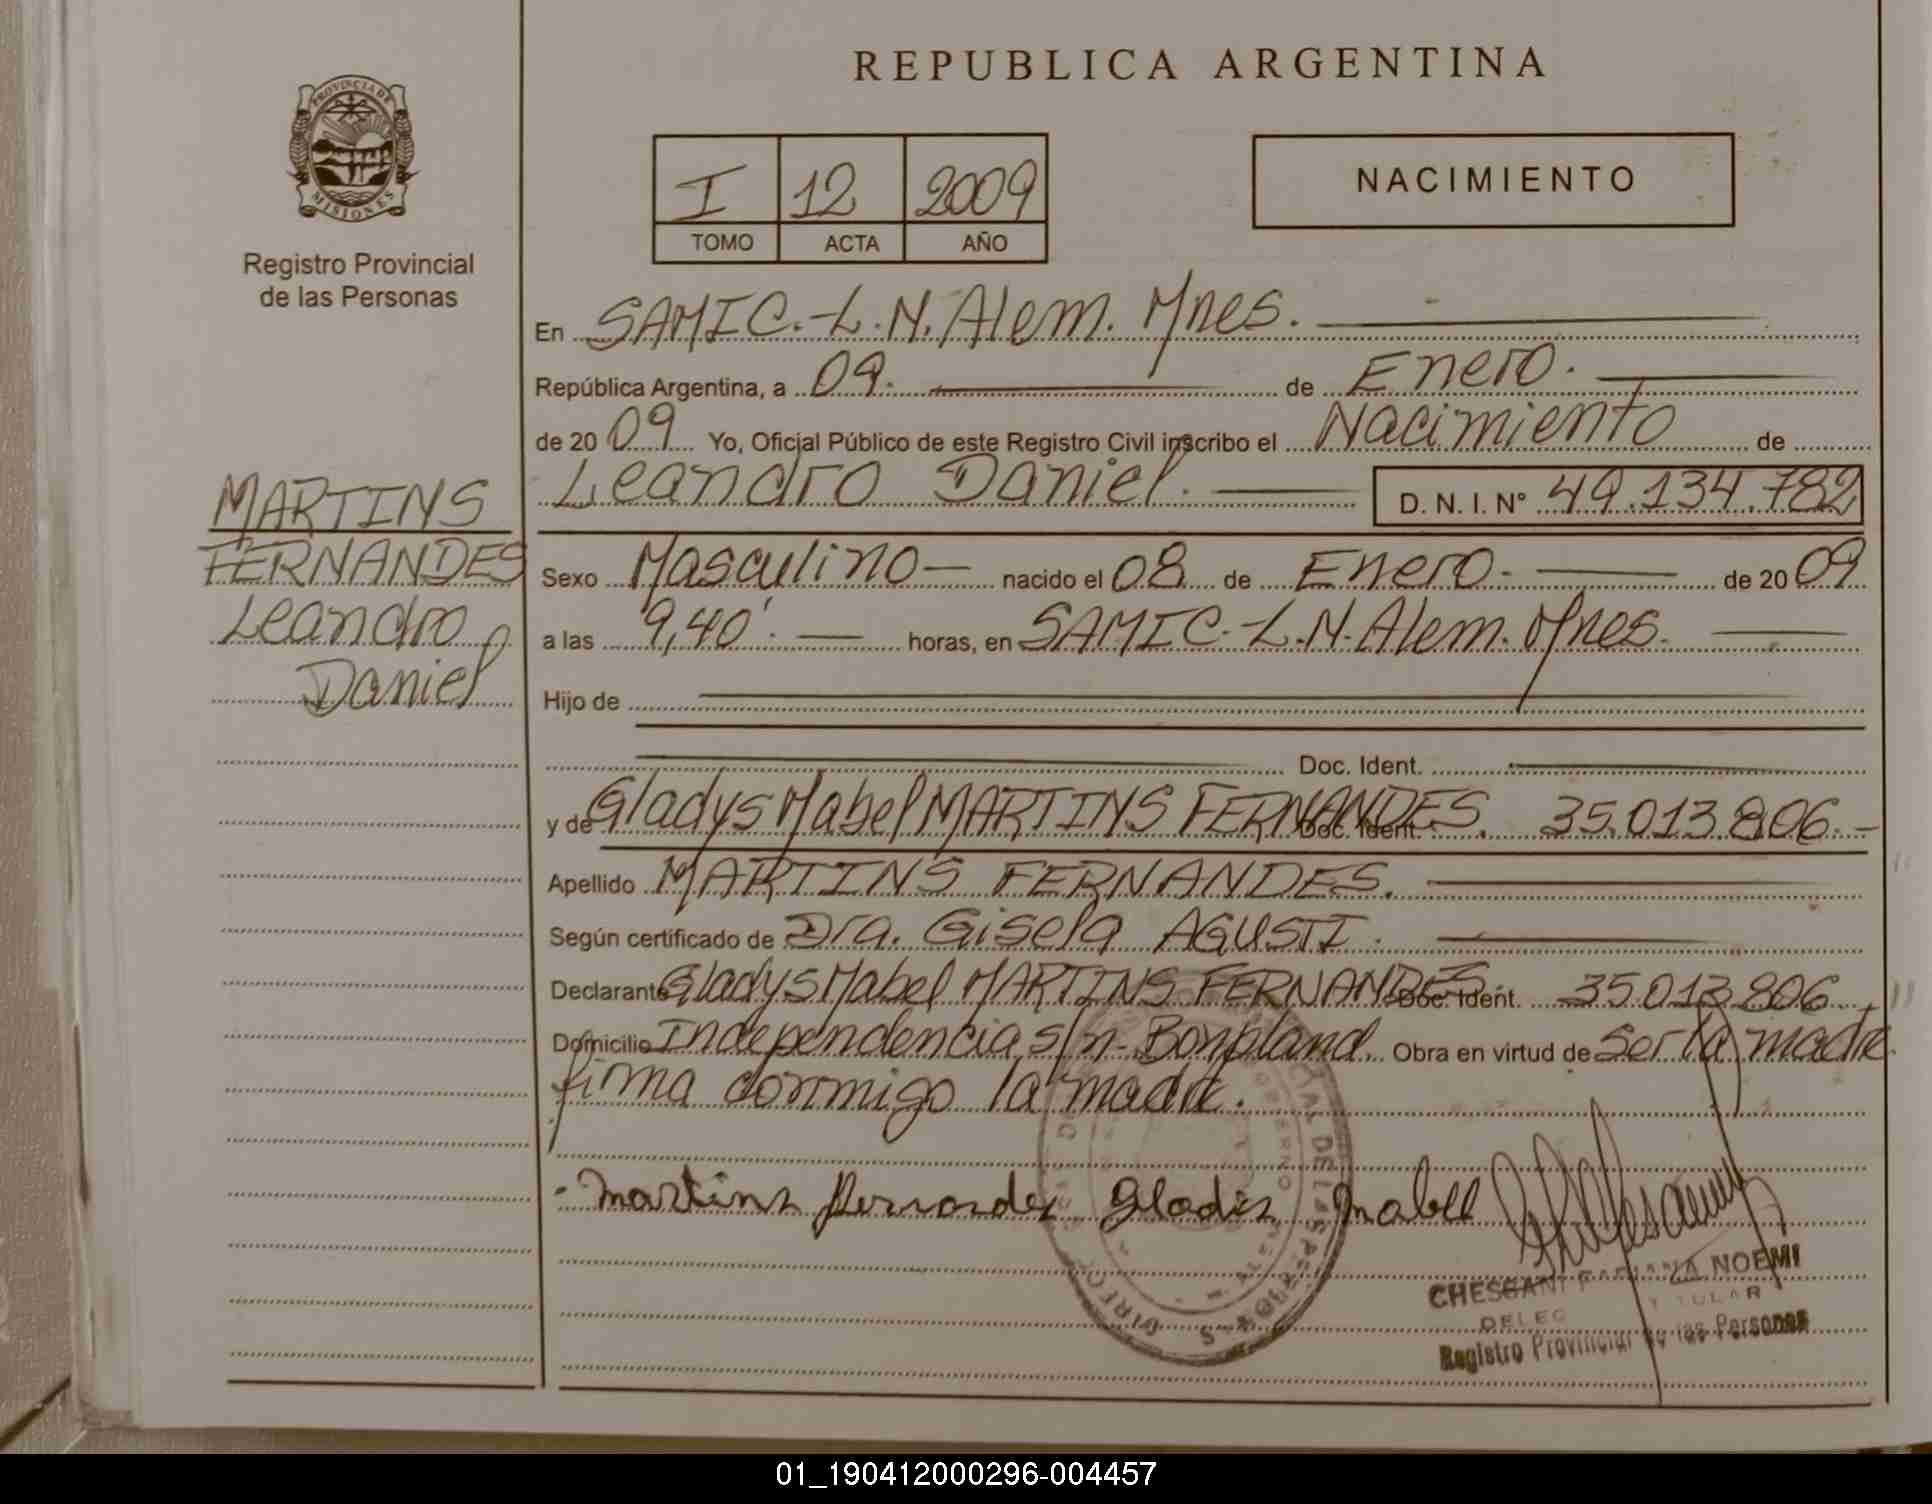 REPUBLICA ARGENTINA
PROVINCIA DE
MISIONES
Registro Provincial
de las Personas
I 12 2009
TOMO ACTA AÑO
NACIMIENTO
En SAMIC.-L.N.Alem. Mnes.
República Argentina, a 09. de Enero.
de 20 09 Yo, Oficial Público de este Registro Civil inscribo el Nacimiento de
Leandro Daniel. D. N. I. N° 49.134.782
MARTINS
FERNANDES
Leandro
Daniel
Sexo Masculino nacido el 08 de Enero. de 20 09
a las 9,40'. horas, en SAMIC.-L.N.Alem. Mnes.
Hijo de
Doc. Ident.
y de Gladys Mabel MARTINS FERNANDES. Doc. Ident. 35.013.806.-
Apellido MARTINS FERNANDES.
Según certificado de Dra. Gisela AGUSTI.
Declarante Gladys Mabel MARTINS FERNANDES Doc. Ident. 35.013.806
Domicilio Independencia s/n-Bonpland. Obra en virtud de ser la madre
firma conmigo la madre.
Martins fernandes Gladis mabel
CHESGANI FABIANA NOEMI
Registro Provincial de las Personas
01_190412000296-004457